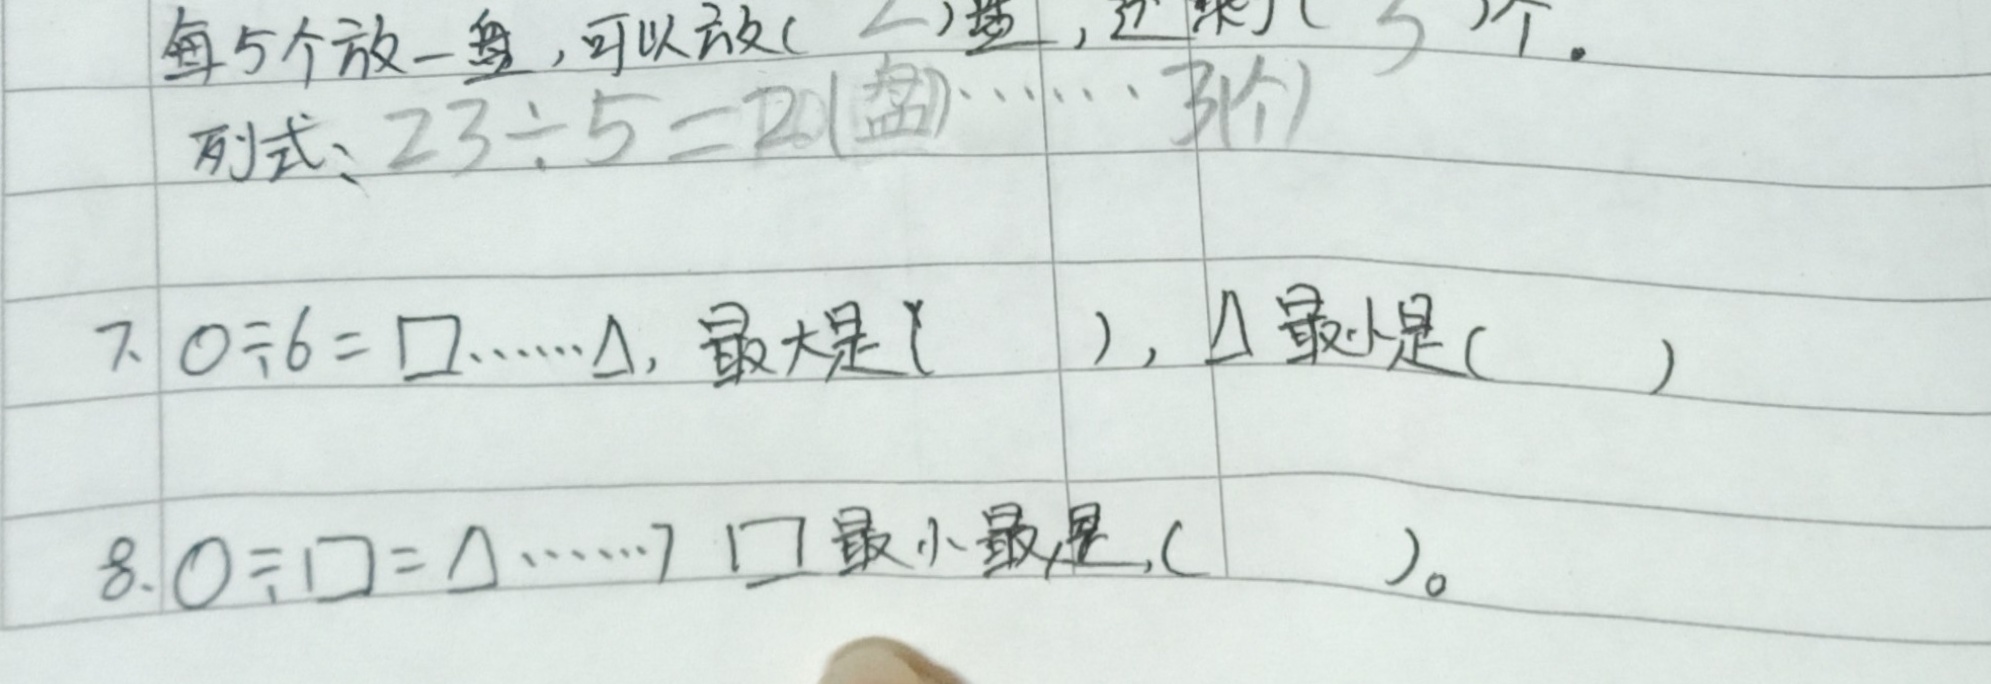 每5个放一盘,可以放( 2 )盘,还剩了( 3 )个.
列式、23÷5=20(盘)……3(个)
7. ○÷6=□……△, 最大是( ), △最小是( )
8. ○÷□=△……7 □最小最是,( )。